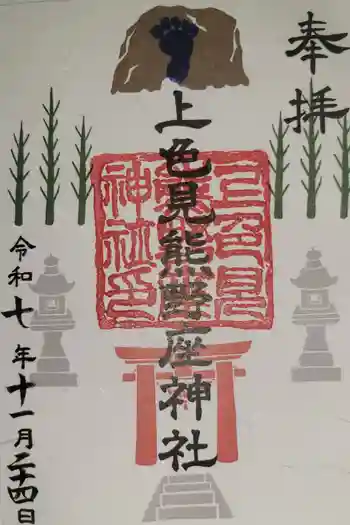 奉拝
上色見熊野座神社
上色見熊野座神社印
令和七年十一月二十四日